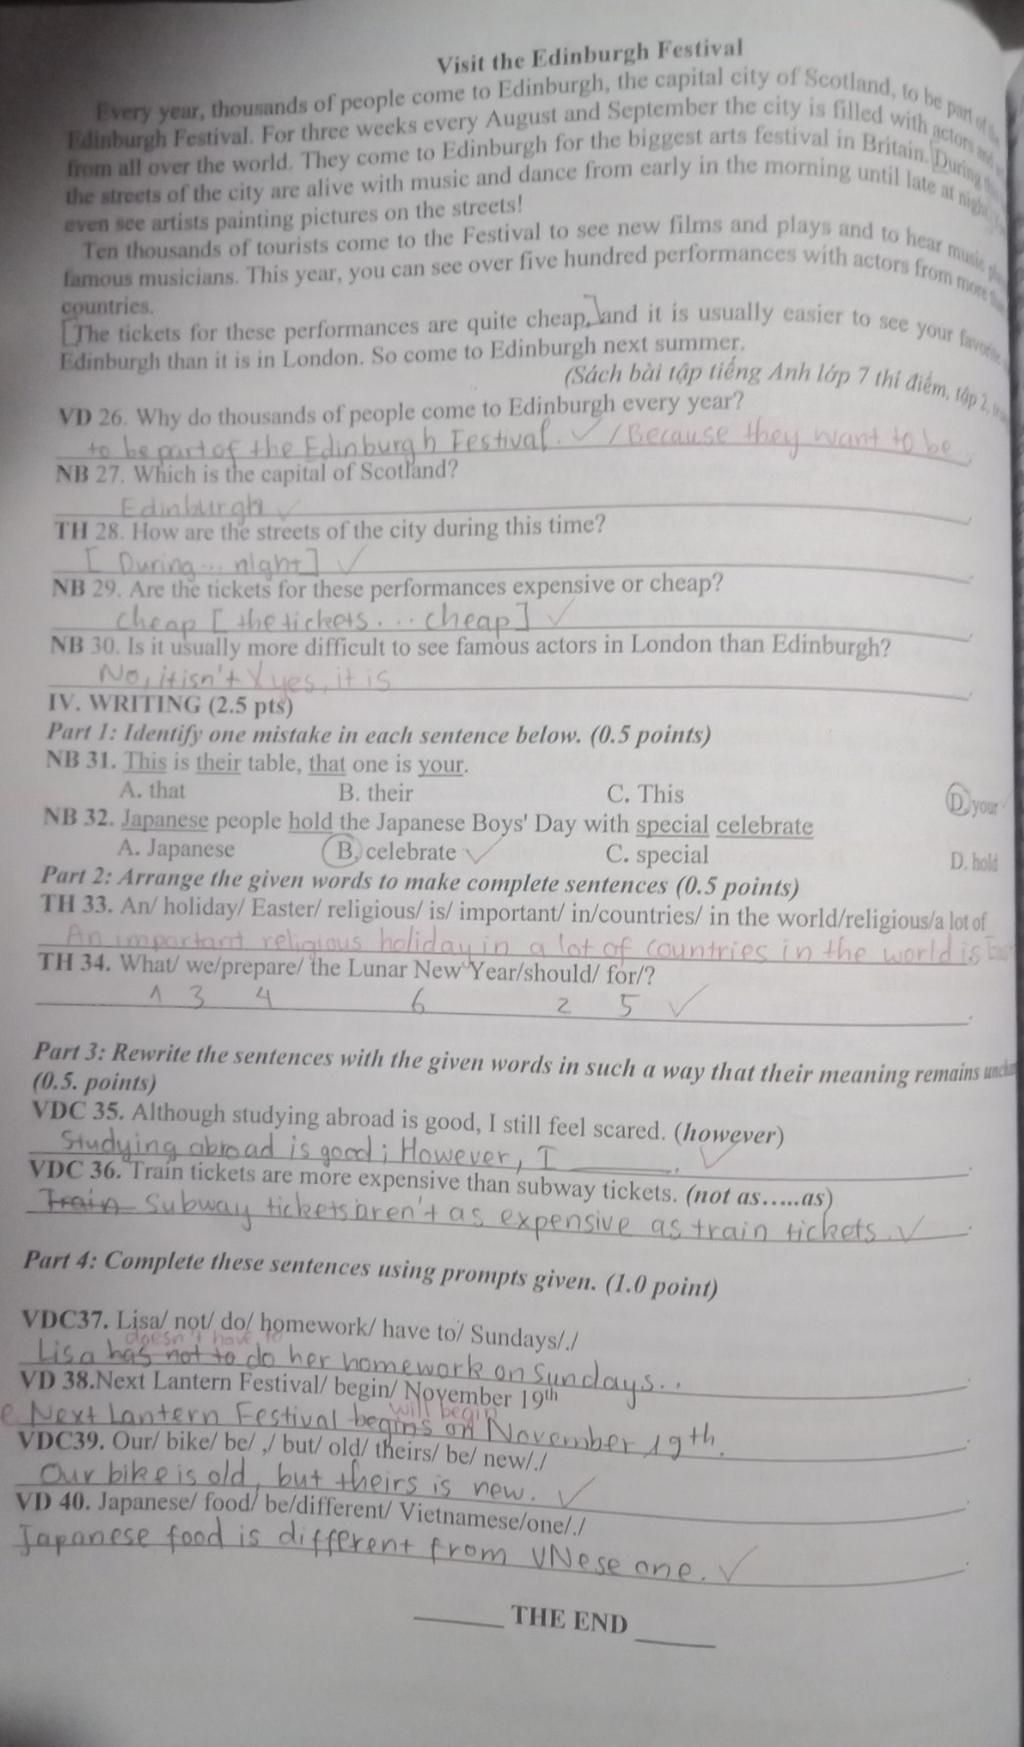 Visit the Edinburgh Festival
Every year, thousands of people come to Edinburgh, the capital city of Scotland, to be part of the
Edinburgh Festival. For three weeks every August and September the city is filled with actors and
from all over the world. They come to Edinburgh for the biggest arts festival in Britain. [During this
the streets of the city are alive with music and dance from early in the morning until late at night]
even see artists painting pictures on the streets!
Ten thousands of tourists come to the Festival to see new films and plays and to hear music
famous musicians. This year, you can see over five hundred performances with actors from more than
countries.
[The tickets for these performances are quite cheap,] and it is usually easier to see your favorite
Edinburgh than it is in London. So come to Edinburgh next summer.
(Sách bài tập tiếng Anh lớp 7 thí điểm, tập 2,
VD 26. Why do thousands of people come to Edinburgh every year?
to be part of the Edinburgh Festival. ✓ / Because they want to be
NB 27. Which is the capital of Scotland?
Edinburgh ✓
TH 28. How are the streets of the city during this time?
[ During... night ] ✓
NB 29. Are the tickets for these performances expensive or cheap?
cheap [ the tickets... cheap ] ✓
NB 30. Is it usually more difficult to see famous actors in London than Edinburgh?
No, it isn't X yes, it is
IV. WRITING (2.5 pts)
Part 1: Identify one mistake in each sentence below. (0.5 points)
NB 31. This is their table, that one is your.
A. that B. their C. This D. your ✓
NB 32. Japanese people hold the Japanese Boys' Day with special celebrate
A. Japanese B. celebrate ✓ C. special D. hold
Part 2: Arrange the given words to make complete sentences (0.5 points)
TH 33. An/ holiday/ Easter/ religious/ is/ important/ in/countries/ in the world/religious/a lot of
An important religious holiday in a lot of countries in the world is
TH 34. What/ we/prepare/ the Lunar New Year/should/ for/?
1 3 4 6 2 5 ✓
Part 3: Rewrite the sentences with the given words in such a way that their meaning remains
(0.5. points)
VDC 35. Although studying abroad is good, I still feel scared. (however)
Studying abroad is good; However, I ______. ✓
VDC 36. Train tickets are more expensive than subway tickets. (not as.....as)
Train Subway tickets aren't as expensive as train tickets. ✓
Part 4: Complete these sentences using prompts given. (1.0 point)
VDC37. Lisa/ not/ do/ homework/ have to/ Sundays/./
doesn't have to
Lisa has not to do her homework on Sundays..
VD 38.Next Lantern Festival/ begin/ November 19th
will begin
e Next Lantern Festival begins on November 19th.
VDC39. Our/ bike/ be/ ,/ but/ old/ theirs/ be/ new/./
Our bike is old, but theirs is new. ✓
VD 40. Japanese/ food/ be/different/ Vietnamese/one/./
Japanese food is different from VNese one. ✓
______ THE END ______